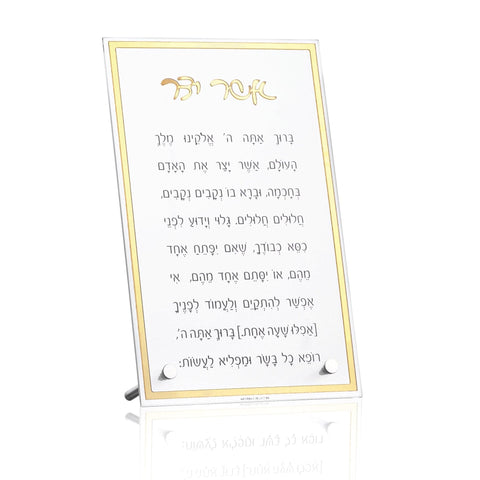 אשר יצר
בָּרוּךְ אַתָּה ה' אֱלֹקֵינוּ מֶלֶךְ
הָעוֹלָם, אֲשֶׁר יָצַר אֶת הָאָדָם
בְּחָכְמָה, וּבָרָא בוֹ נְקָבִים נְקָבִים,
חֲלוּלִים חֲלוּלִים. גָּלוּי וְיָדוּעַ לִפְנֵי
כִסֵּא כְבוֹדֶךָ, שֶׁאִם יִפָּתֵחַ אֶחָד
מֵהֶם, אוֹ יִסָּתֵם אֶחָד מֵהֶם, אִי
אֶפְשַׁר לְהִתְקַיֵּם וְלַעֲמוֹד לְפָנֶיךָ
[אֲפִלּוּ שָׁעָה אֶחָת.] בָּרוּךְ אַתָּה ה',
רוֹפֵא כָל בָּשָׂר וּמַפְלִיא לַעֲשׂוֹת: